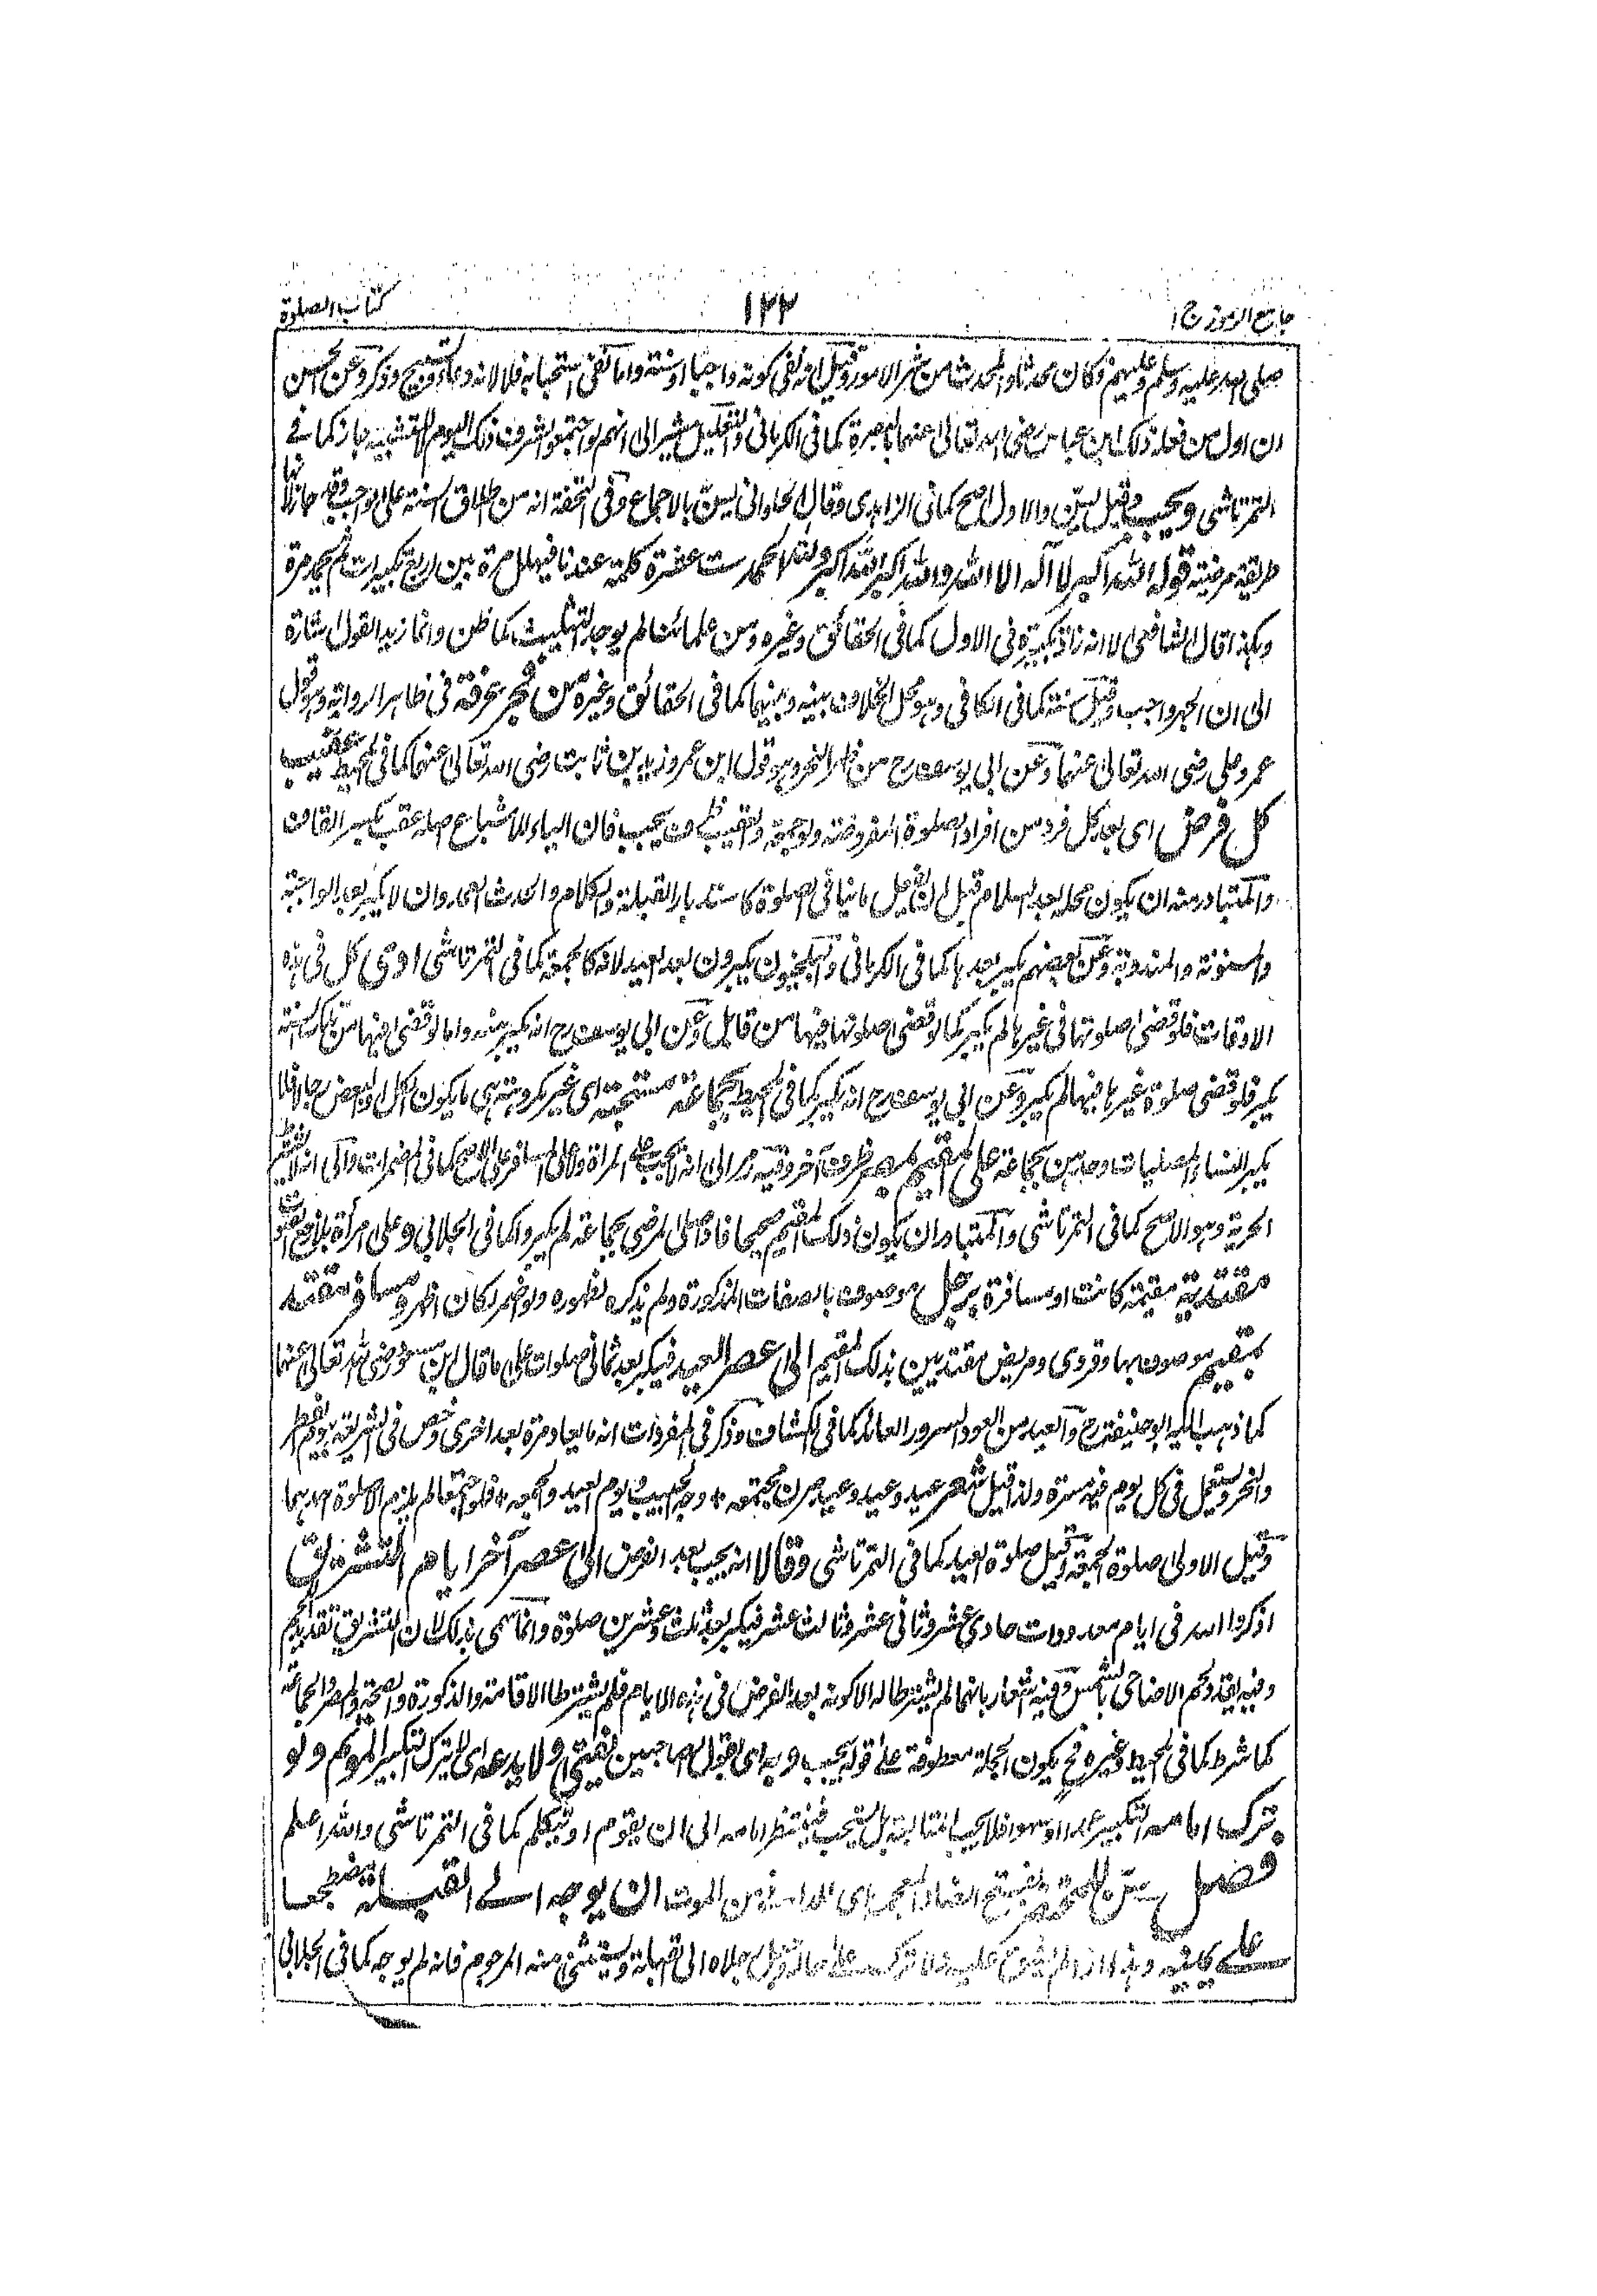 جامع الرموز ج ١
١٢٢
كتاب الصلوة
صلى الله عليه وسلم وعليهم وكان محدثا والمحدث من شر الامور وقيل انه نفى كونه واجبا او سنة واما نفى استحبابه فلا لانه دعاء وتسبيح وذكر وعن الحسن
ان اول من فعل ذلك ابن عباس رضى الله تعالى عنهما بالبصرة كما فى الكرمانى والتعليل مشير الى انهم لو اجتمعوا لشرف ذلك اليوم لا للتشبيه جاز كما فى
التمرتاشى ويجب وقيل يسن والاول اصح كما فى الزاهدى وقال الحلوانى يسن بالاجماع وفى التحفة انه من اطلاق السنة على الواجب جاز لانها
طريقة مرضية قوله الله اكبر لا اله الا الله والله اكبر الله اكبر ولله الحمد ست عشرة كلمة عندنا فيهلل مرة بين اربع تكبيرات ثم يحمد مرة
وبهذا قال الشافعى الا انه زاد تكبيرة فى الاول كما فى الحقائق وغيره ومن علمائنا لم يوجد التثليث كما ظن وانما زيد القول اشارة
الى ان الجهر واجب وقيل سنة كما فى الكافى وهو محل الخلاف بينه وبينهما كما فى الحقائق وغيره من فجر عرفة فى ظاهر الرواية وهو قول
عمر وعلى رضى الله تعالى عنهما وعن ابى يوسف رح من ظهر النحر وهو قول ابن عمر وزيد بن ثابت رضى الله تعالى عنهما كما فى المحيط عقيب
كل فرض اى بعد كل فرد من افراد الصلوة المفروضة ولو جمعة فان الياء للاشباع اصله عقب بكسر القاف
والمتبادر منه ان يكون محله بعد السلام قبل ان يفعل ما ينافى الصلوة كاستدبار القبلة والكلام والحدث العمد وان لا يكبر بعد الواجبة
والمسنونة والمندوبة وعن بعضهم يكبر بعدها كما فى الكرمانى والبلخيون يكبرون بعد العيد لانه كالجمعة كما فى التمرتاشى ادى كل فى هذه
الاوقات فلو قضى صلوتها فى غيرها لم يكبر كما لو قضى صلوتها فيها من قابل وعن ابى يوسف رح انه يكبر منه واما لو قضى فيها من تلك السنة
يكبر فلو قضى صلوة غيرها فيها لم يكبر وعن ابى يوسف رح انه يكبر كما فى المحيط بجماعة مستحبة اى غير مكروهة وهى ما يكون الكل او البعض رجالا فلا
يكبر النساء المصليات وحدهن بجماعة على المقيم بمصر ظرف آخر وفيه رمز الى انه لا يجب على المرأة ولا على المسافر على الاصح كما فى المضمرات والى انه لا يشترط
الحرية وهو الاصح كما فى التمرتاشى والمتبادر ان يكون ذلك المقيم صحيحا فاذا صلى المرضى بجماعة لم يكبروا كما فى الجلابى وعلى امرأة
مقتدية مقيمة كانت او مسافرة برجل موصوف بالصفات المذكورة ولم يذكره لظهوره ولو اضمر لكان اظهر ومسافر مقتد
بمقيم موصوف بها وقروى ومريض مقتديين بذلك المقيم الى عصر العيد فيكبر بعد ثمانى صلوات على ما قال ابن مسعود رضى الله تعالى عنهما
كما ذهب اليه ابو حنيفة رح والعيد من العود السرور العائد كما فى الكشاف وذكر فى المفردات انه ما يعاود مرة بعد اخرى وخص فى الشريعة بيوم الفطر
والنحر ويستعمل فى كل يوم فيه مسرة ولذا قيل شعر عيد وعيد وعيد صرن مجتمعه * وجه الحبيب ويوم العيد والجمعه * فلو اجتمعا لم يلزم الا صلوة احدهما
وقيل الاولى صلوة الجمعة وقيل صلوة العيد كما فى التمرتاشى وقالا انه يجب بعد الفرض الى عصر آخر ايام التشريق
اذكروا الله فى ايام معدودات حادى عشر وثانى عشر وثالث عشر فيكبر بعد ثلث وعشرين صلوة وانما سمى بذلك لان التشريق تقديد اللحم
وفيه يقد لحم الاضاحى بالشمس وفيه اشعار بانهما لم يشترطا له الا كونه بعد الفرض فى هذه الايام فلم يشترطا الاقامة والذكورة والصحة والمصر والجماعة
كما شرط كما فى المحيط وغيره فح يكون الجملة معطوفة على قوله يجب وبه اى بقول الصاحبين يفتى ولا يدعه اى لا يترك التكبير المؤتم ولو
ترك امامه التكبير عمدا او سهوا فلا يجب المتابعة بل يستحب فينتظر امامه الى ان يقوم او يتكلم كما فى التمرتاشى والله اعلم
فصل سن للمحتضر بفتح الضاد المعجمة اى من الموت ان يوجه الى القبلة مضطجعا
على يمينه وهذا اذا لم يشق عليه والا ترك على حاله رجلاه الى القبلة ويستثنى منه المرجوم فانه لم يوجه كما فى الجلابى